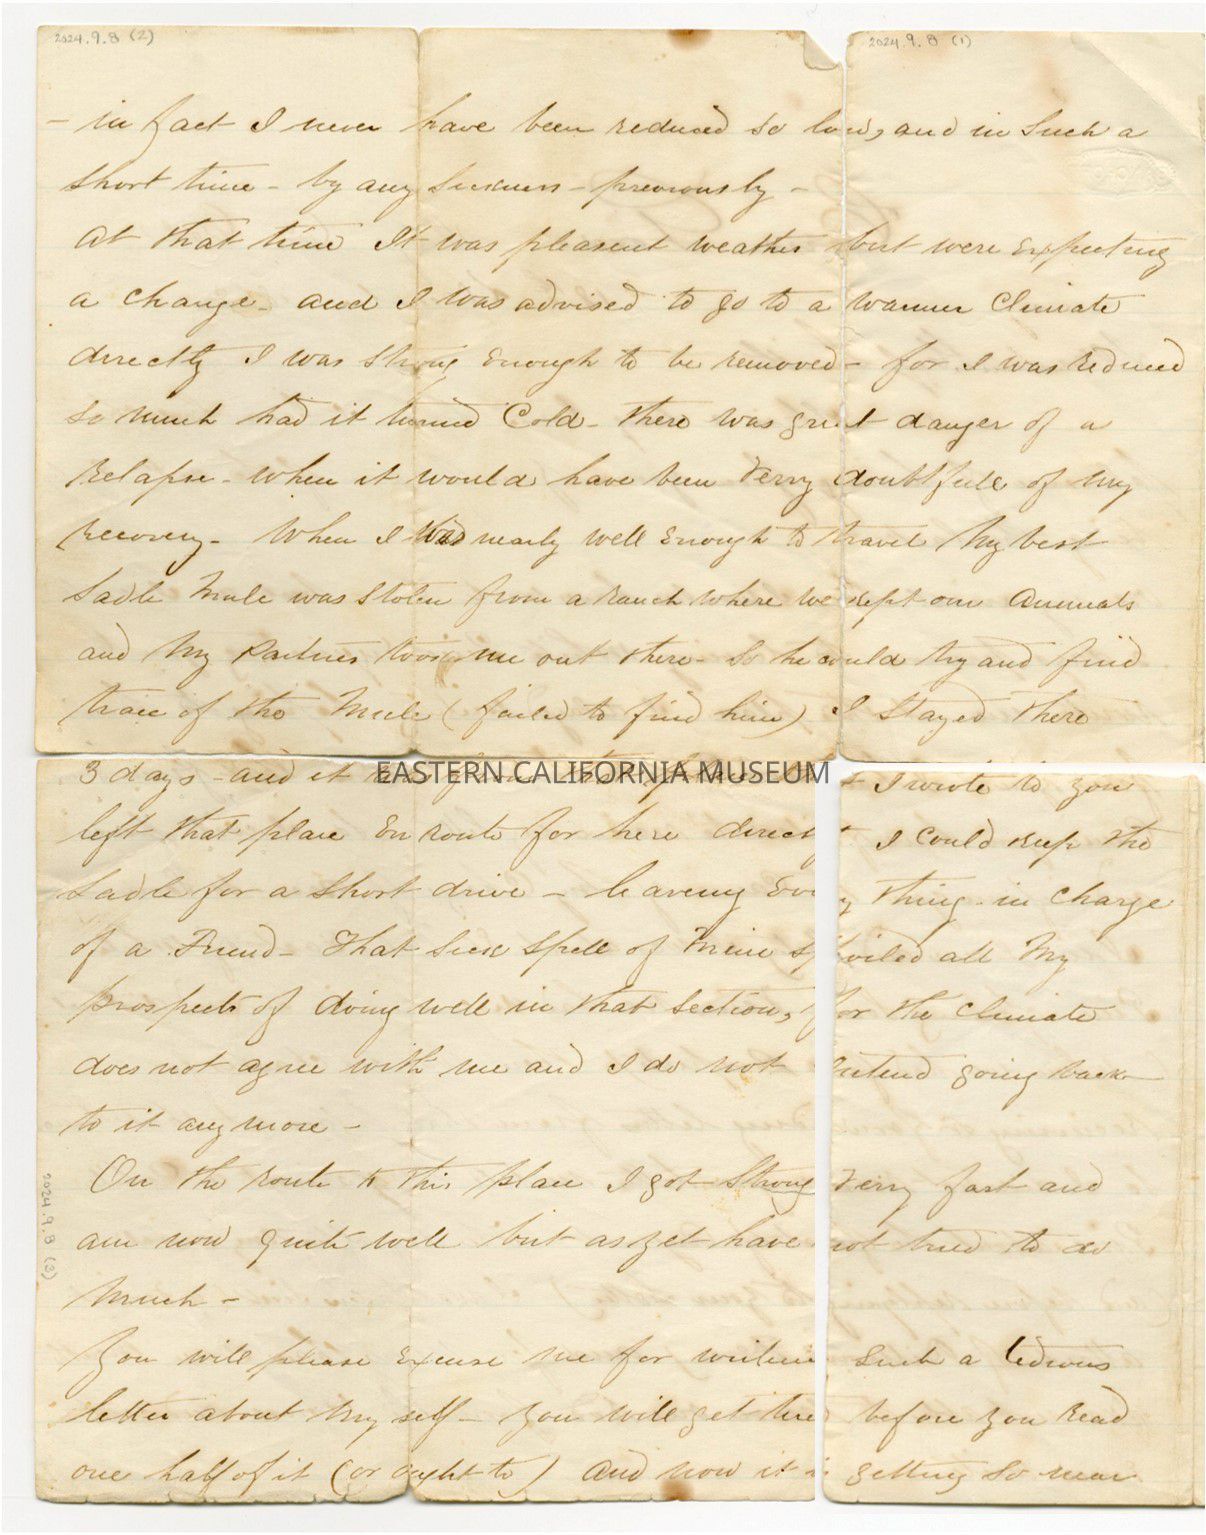 2024.9.8 (2)
2024.9.8 (1)
- in fact I never have been reduced so low, and in Such a
Short time - by any Sickness - previously -
At that time It was pleasent weather but were Expecting
a change - and I was advised to go to a warmer Climate
directly I was Strong Enough to be removed - for I was Reduced
So much had it turned Cold - there was great danger of a
Relapse - when it would have been Verry doubtfull of my
recovery - When I was nearly well Enough to travel My best
Sadle Mule was Stolen from a Ranch where we Kept our Animals
and My Partner took me out there - So he could try and find
trace of the Mule (failed to find him) I Stayed there
3 days - and it
EASTERN CALIFORNIA MUSEUM
I wrote to you
left that place En route for here direct I Could Keep the
Sadle for a Short drive - leaveing Every thing - in Charge
of a Friend - That Sick Spell of Mine Spoiled all My
prospects of doing well in that Section, for the Climate
does not agree with me and I do not Intend going back
to it any more -
On the route to this place I got Strong Verry fast and
am now quite well but as yet have not tried to do
Much -
You will please Excuse me for writeing Such a tedious
letter about My self - You will get tired before you Read
one half of it (or ought to) And now it is getting So near
2024.9.8 (3)